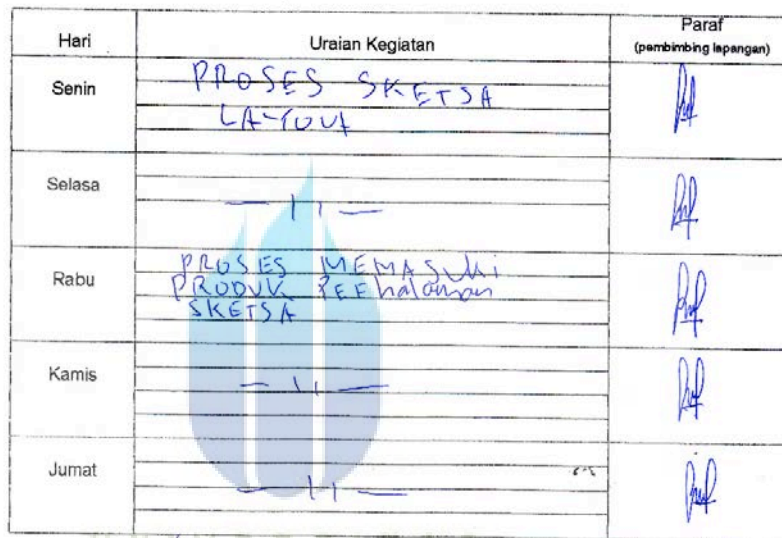 Hari Uraian Kegiatan Paraf
(pembimbing lapangan)
Senin PROSES SKETSA
LAYOUT
Selasa — 11 —
Rabu PROSES MEMASUKi
PRODUK PERhalaman
SKETSA
Kamis — 11 —
Jumat — 11 —